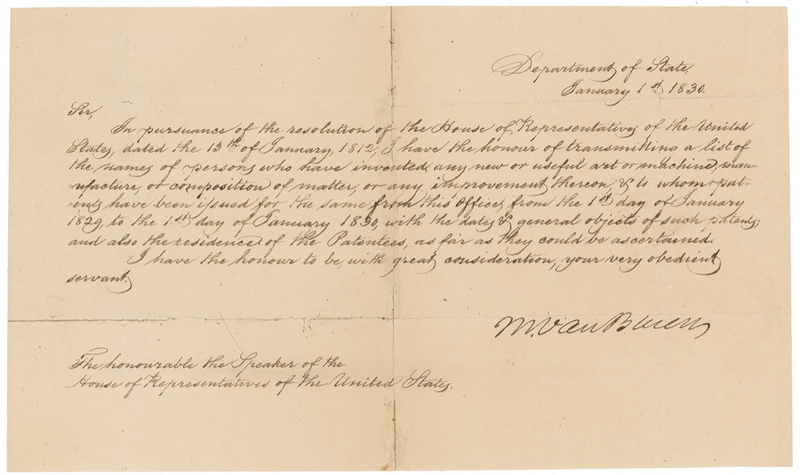 Department of State,
January 1st 1830.
Sir,
In pursuance of the resolution of the House of Representatives of the United
States, dated the 13th of January, 1812, I have the honour of transmitting a list of
the names of persons who have invented any new or useful art or machine, man-
ufacture, or composition of matter, or any improvement thereon, & to whom pat-
ents have been issued for the same from this Office, from the 1st day of January
1829, to the 1st day of January 1830, with the dates & general objects of such patents;
and also the residence of the Patentees, as far as they could be ascertained.
I have the honour to be, with great consideration, your very obedient
servant.
M. Van Buren
The honourable the Speaker of the
House of Representatives of the United States.